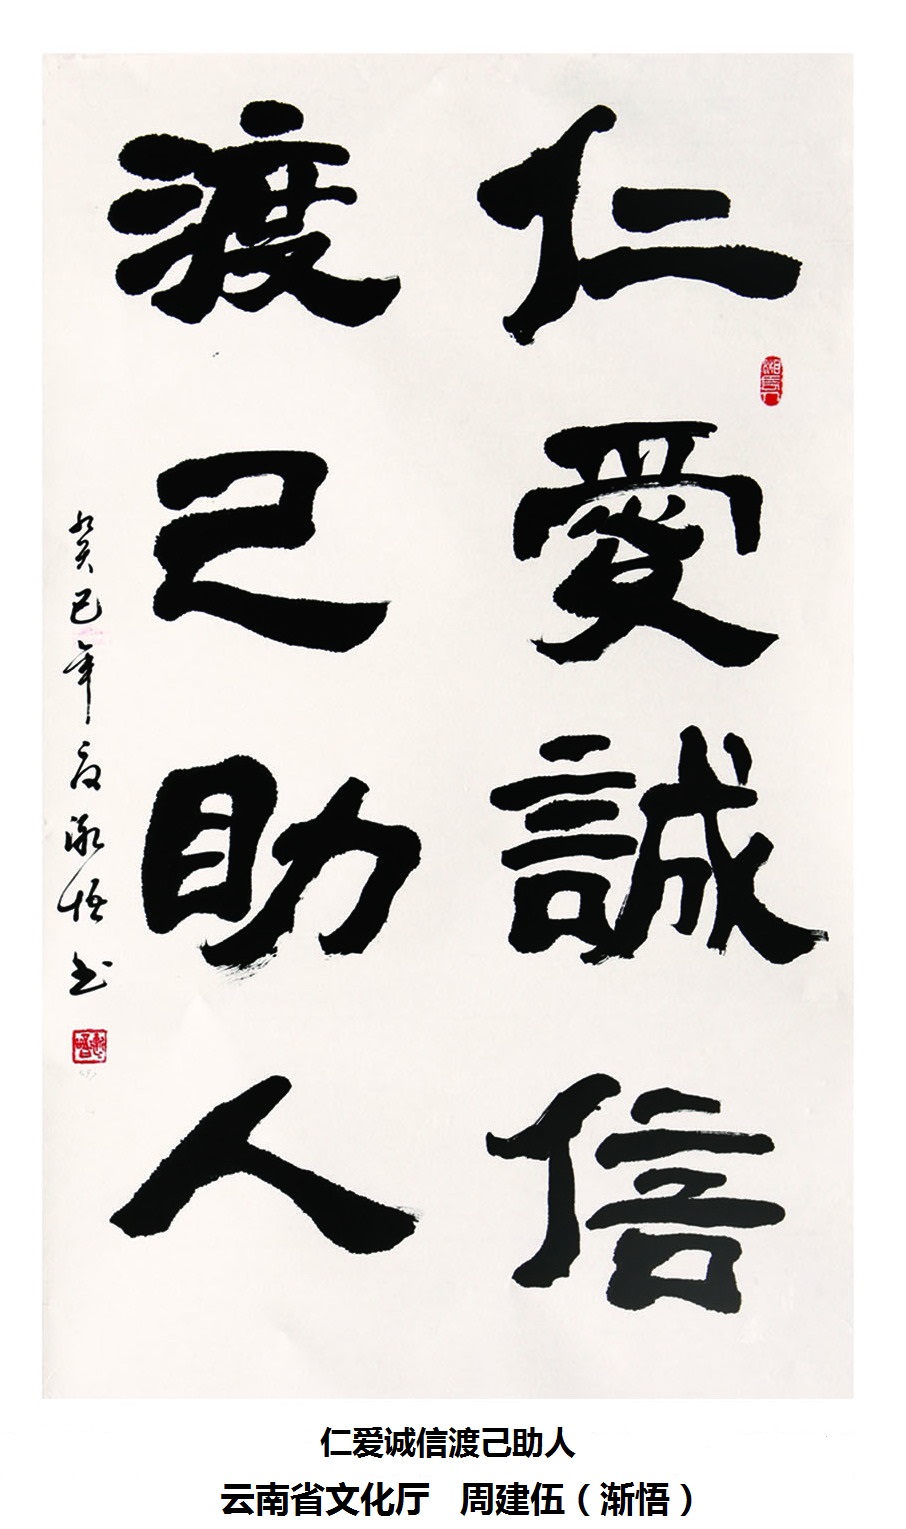 仁愛誠信
渡己助人
癸巳年夏渐悟书
仁爱诚信渡己助人
云南省文化厅 周建伍（渐悟）